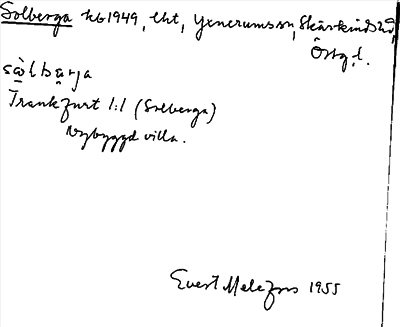 Solberga kb 1949, lht, Yxnerums sn, Skärkinds hd,
Östg. l.
sò̱lbærja
Frankfurt 1:1 (Solberga)
Nybyggd villa.
Evert Melefors 1955